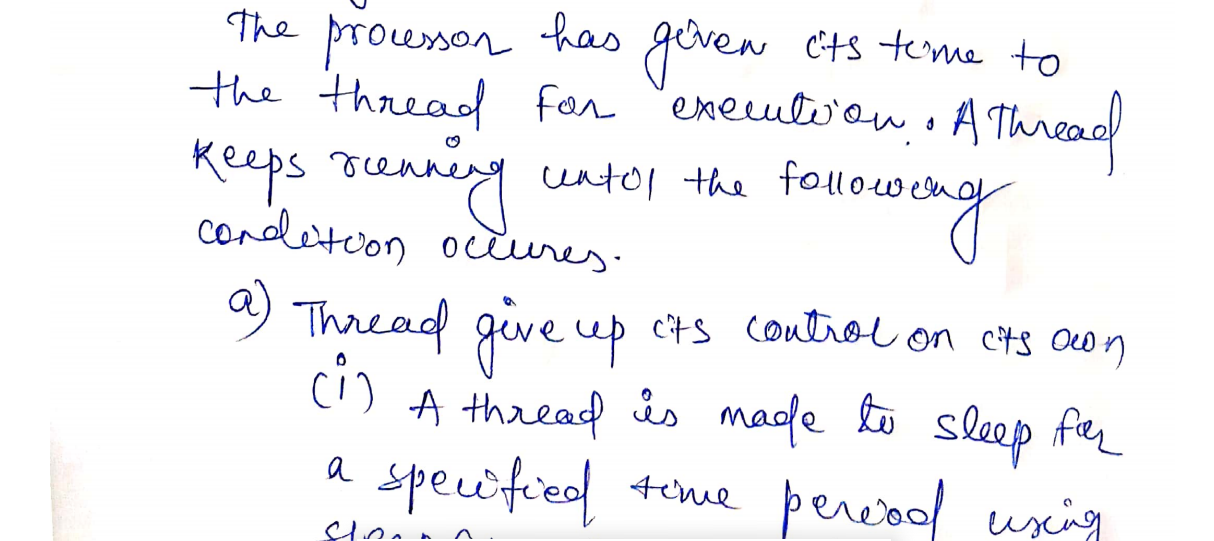 The processor has given its time to
the thread for execution. A Thread
keeps running until the following
condition occures.
a) Thread give up its control on its own
(i) A thread is made to sleep for
a specified time period using